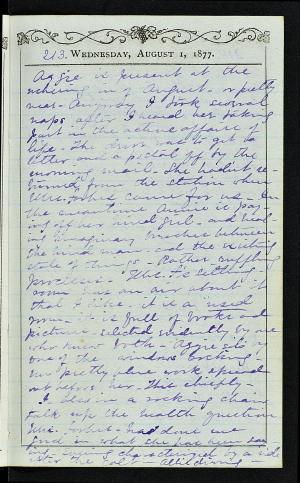 213. WEDNESDAY, AUGUST 1, 1877.
Aggie is present at the
ushering in of August - & pretty
near - Anyway I took several
naps after I heard her taking
part in the active affairs of
life - The dress was to get
letter and a postal off by the
morning mail. She hadn't re-
turned from the station when
Mrs. Forbes came for us - In
the meantime Annie is pay-
ing off her hired girl - and heal-
ing imaginary breaches between
the hired man - and the existing
state of things - Rather ruffling
process - Mrs. F's sitting-
room has an air about it
that I like - it is a used
room - it is full of books and
pictures selected evidently by one
who knew both - Aggie sits by
one of the windows
our pretty blue work spread
out before her - This chiefly -
I also in a rocking chair
talk up the health question
Mrs. Forbes - had done me
good in what she has been say-
ing characterized by a ride
after the colt -